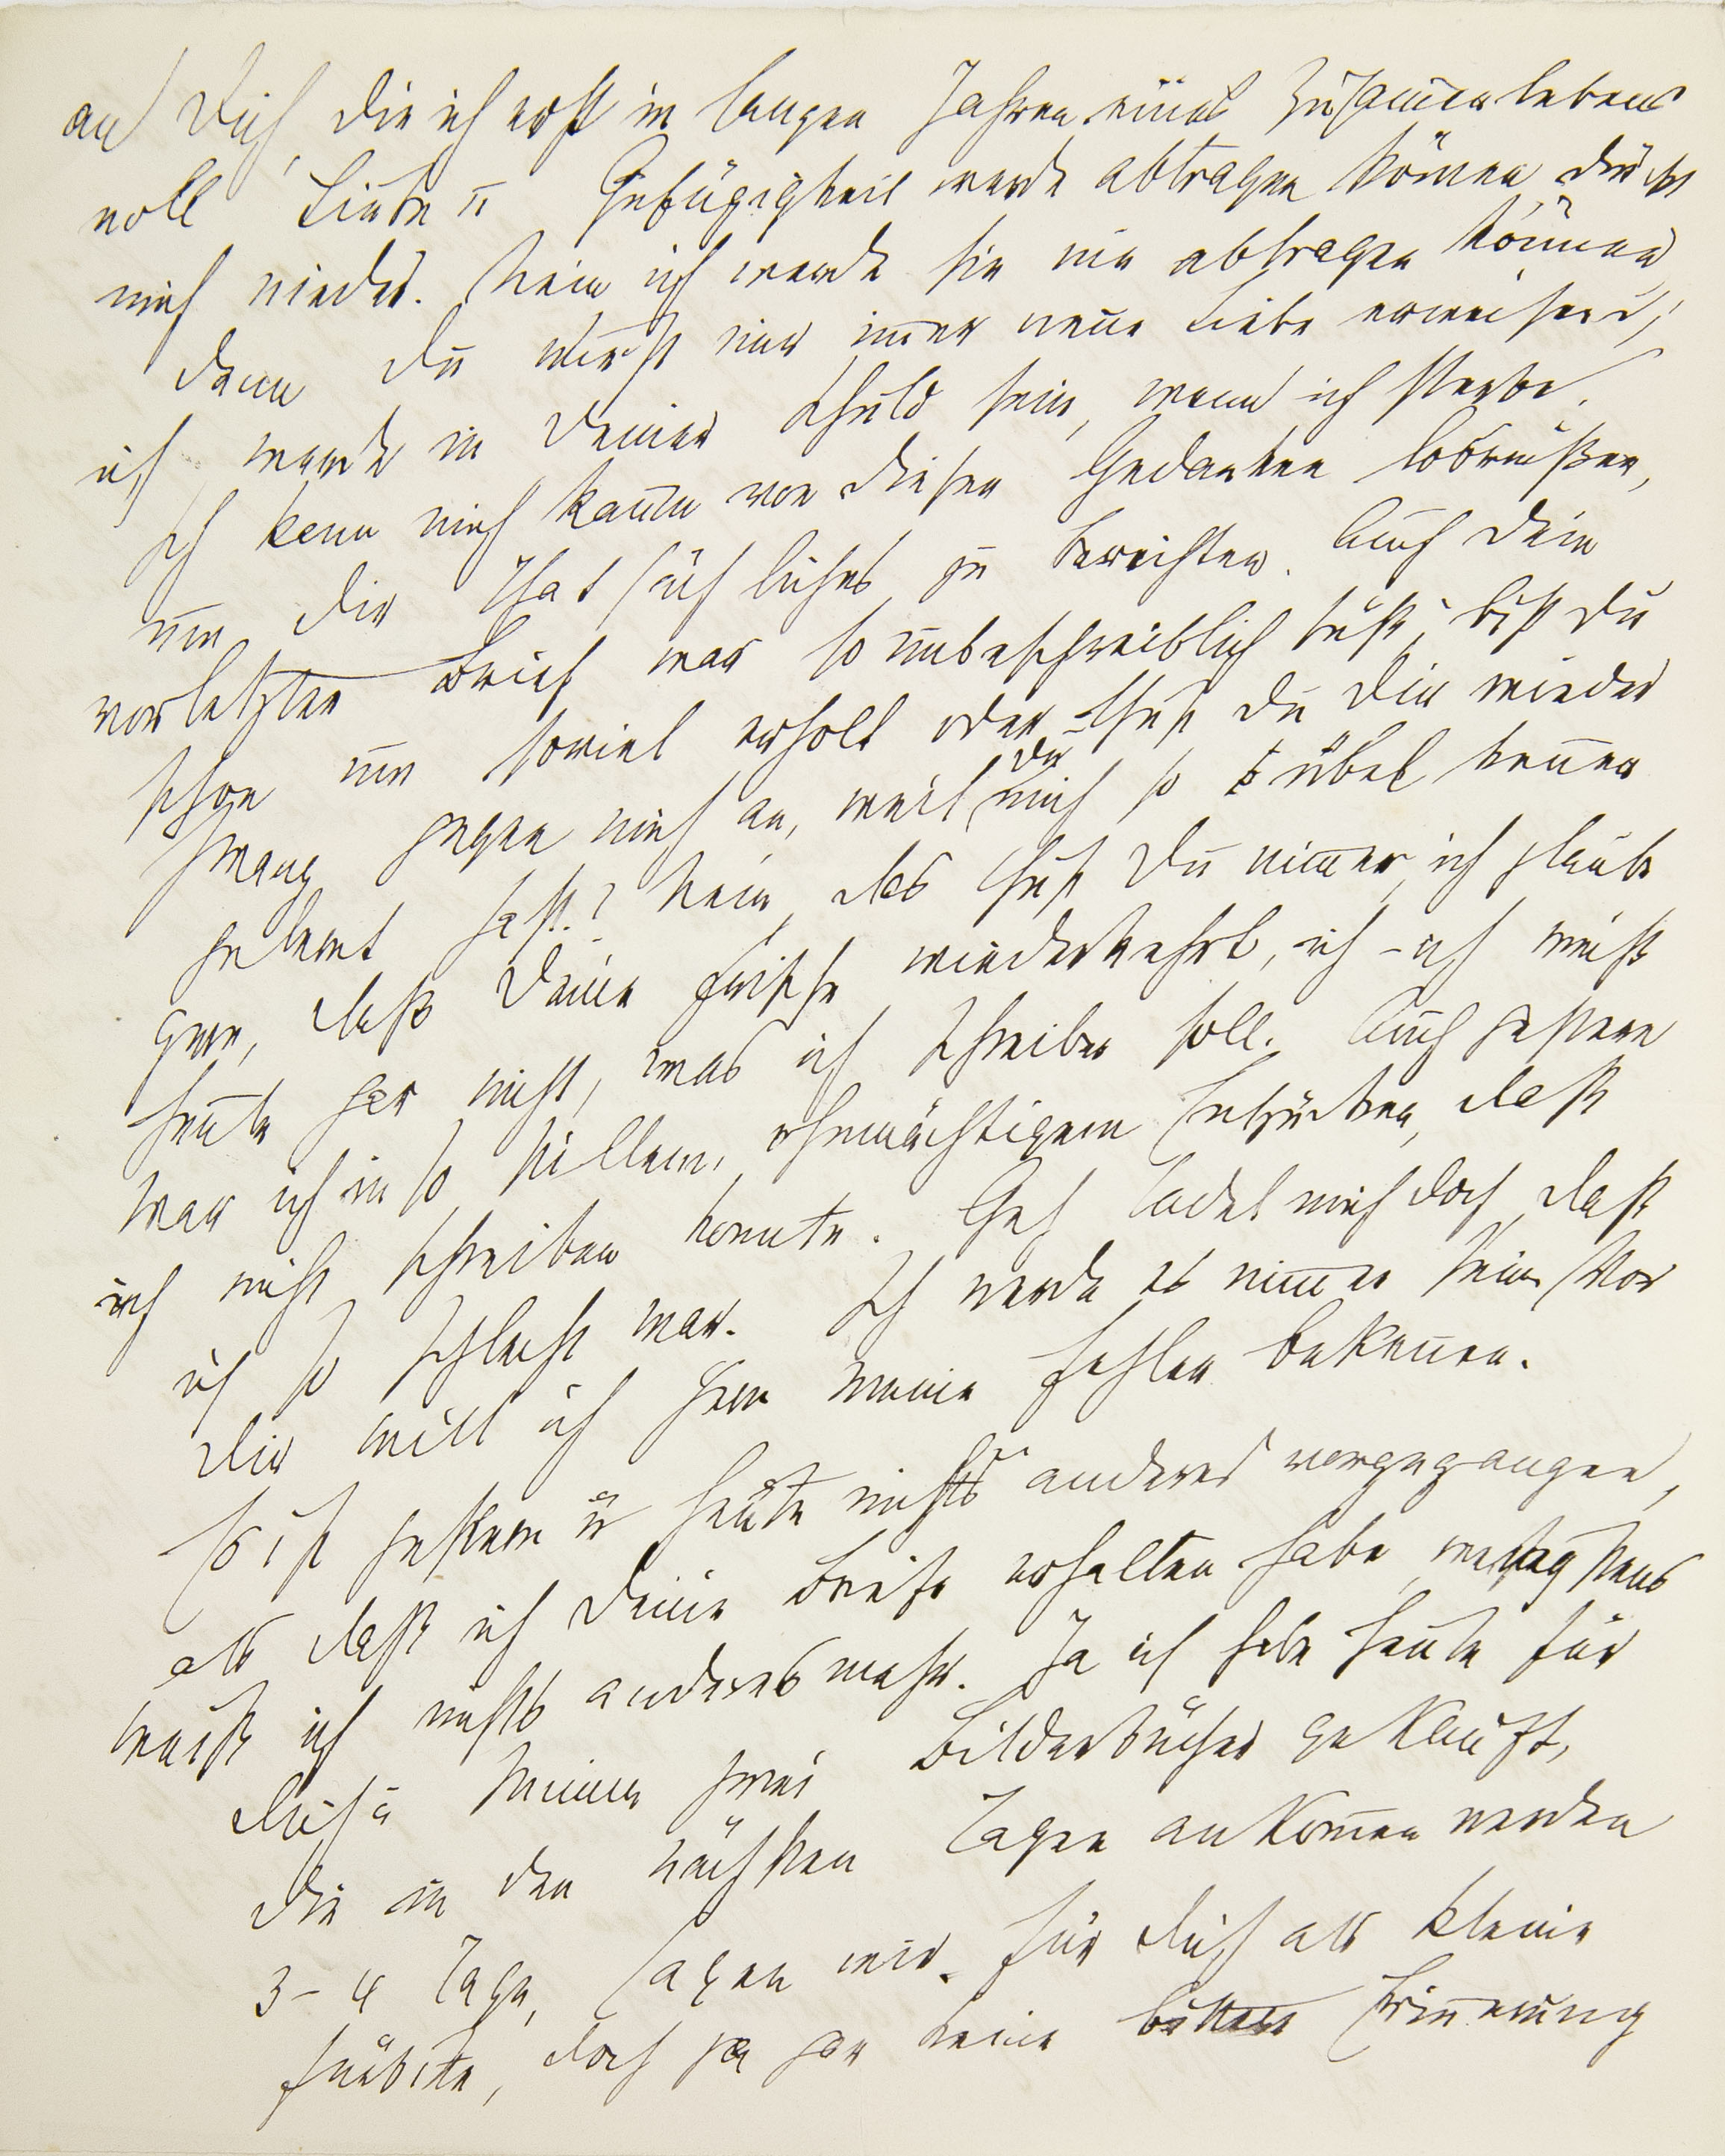 an Dich, die ich erst in langen Jahren eines Zusam̅enlebens
voll Liebe u Gefügigkeit werde abtragen kön̅en, drückt
mich nieder. Nein ich werde sie nie abtragen kön̅en
denn Du wirst mir im̅er neue Liebe erweisen,
ich werde in Deiner Schuld sein, wenn ich sterbe.
Ich kann mich kaum von diesen Gedanken losreißen,
um Dir Thatsächliches zu berichten. Auch Dein
vorletzter Brief war so unbeschreiblich süß, bist Du
schon um soviel erholt oder thust Du Dir wieder
Zwang gegen mich an, weil Du mich so übel ken̅en
gelernt hast? Nein, das thust Du nim̅er, ich glaube
gern, daß Deine Frische wiederkehrt, ich – ich weiß
heute gar nicht, was ich schreiben soll. Auch gestern
war ich in so stillem, ohnmächtigem Entzücken, daß
ich nicht schreiben konnte. Geh tadel mich doch, daß
ich so schlecht war. Ich werde es nim̅er sein. Vor
Dir will ich gern meine Fehler beken̅en.
Es ist gestern u heute nichts anderes vorgegangen,
als daß ich Deine Briefe erhalten habe, wenigstens
weiß ich nichts anderes mehr. Ja ich habe heute für
zwei Bilderbücher gekauft,
die in den nächsten Tagen ankom̅en werden
3–4 Tage, sagen wir. Für Dich als kleine
doch ja gar keine Erin̅erung